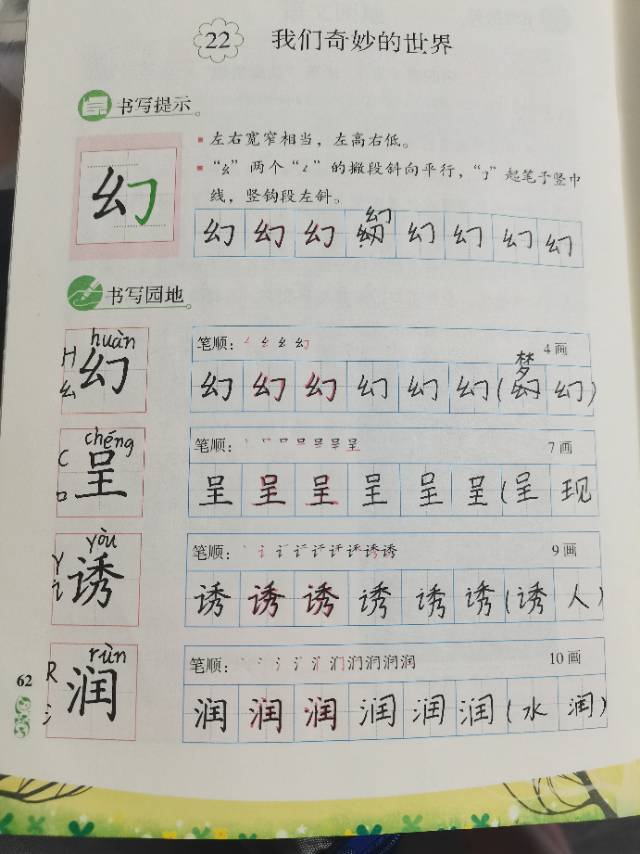 22 我们奇妙的世界
书写提示
左右宽窄相当,左高右低。
“幺”两个“ㄥ”的撇段斜向平行,“𠃌”起笔于竖中
线,竖钩段左斜。
幻
幻
幻 幻 幻 幻 幻 幻 幻 幻
书写园地
huàn
H 幺 幻
笔顺: 4画
梦
幻 幻 幻 幻 幻 幻 ( 幻 )
chéng
C 口 呈
笔顺: 7画
呈 呈 呈 呈 呈 呈 ( 呈 现
yòu
Y 讠 诱
笔顺: 9画
诱 诱 诱 诱 诱 诱 ( 诱 人 )
rùn
R 氵 润
笔顺: 10画
润 润 润 润 润 润 ( 水 润 )
62